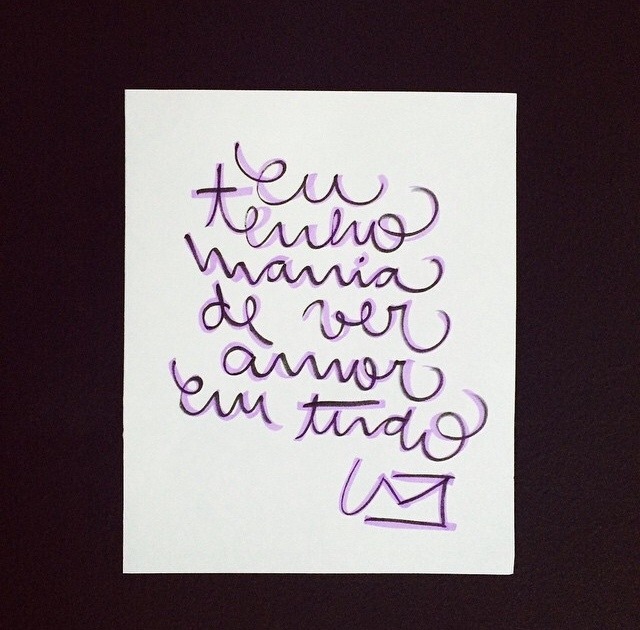 eu
tenho
mania
de ver
amor
em tudo